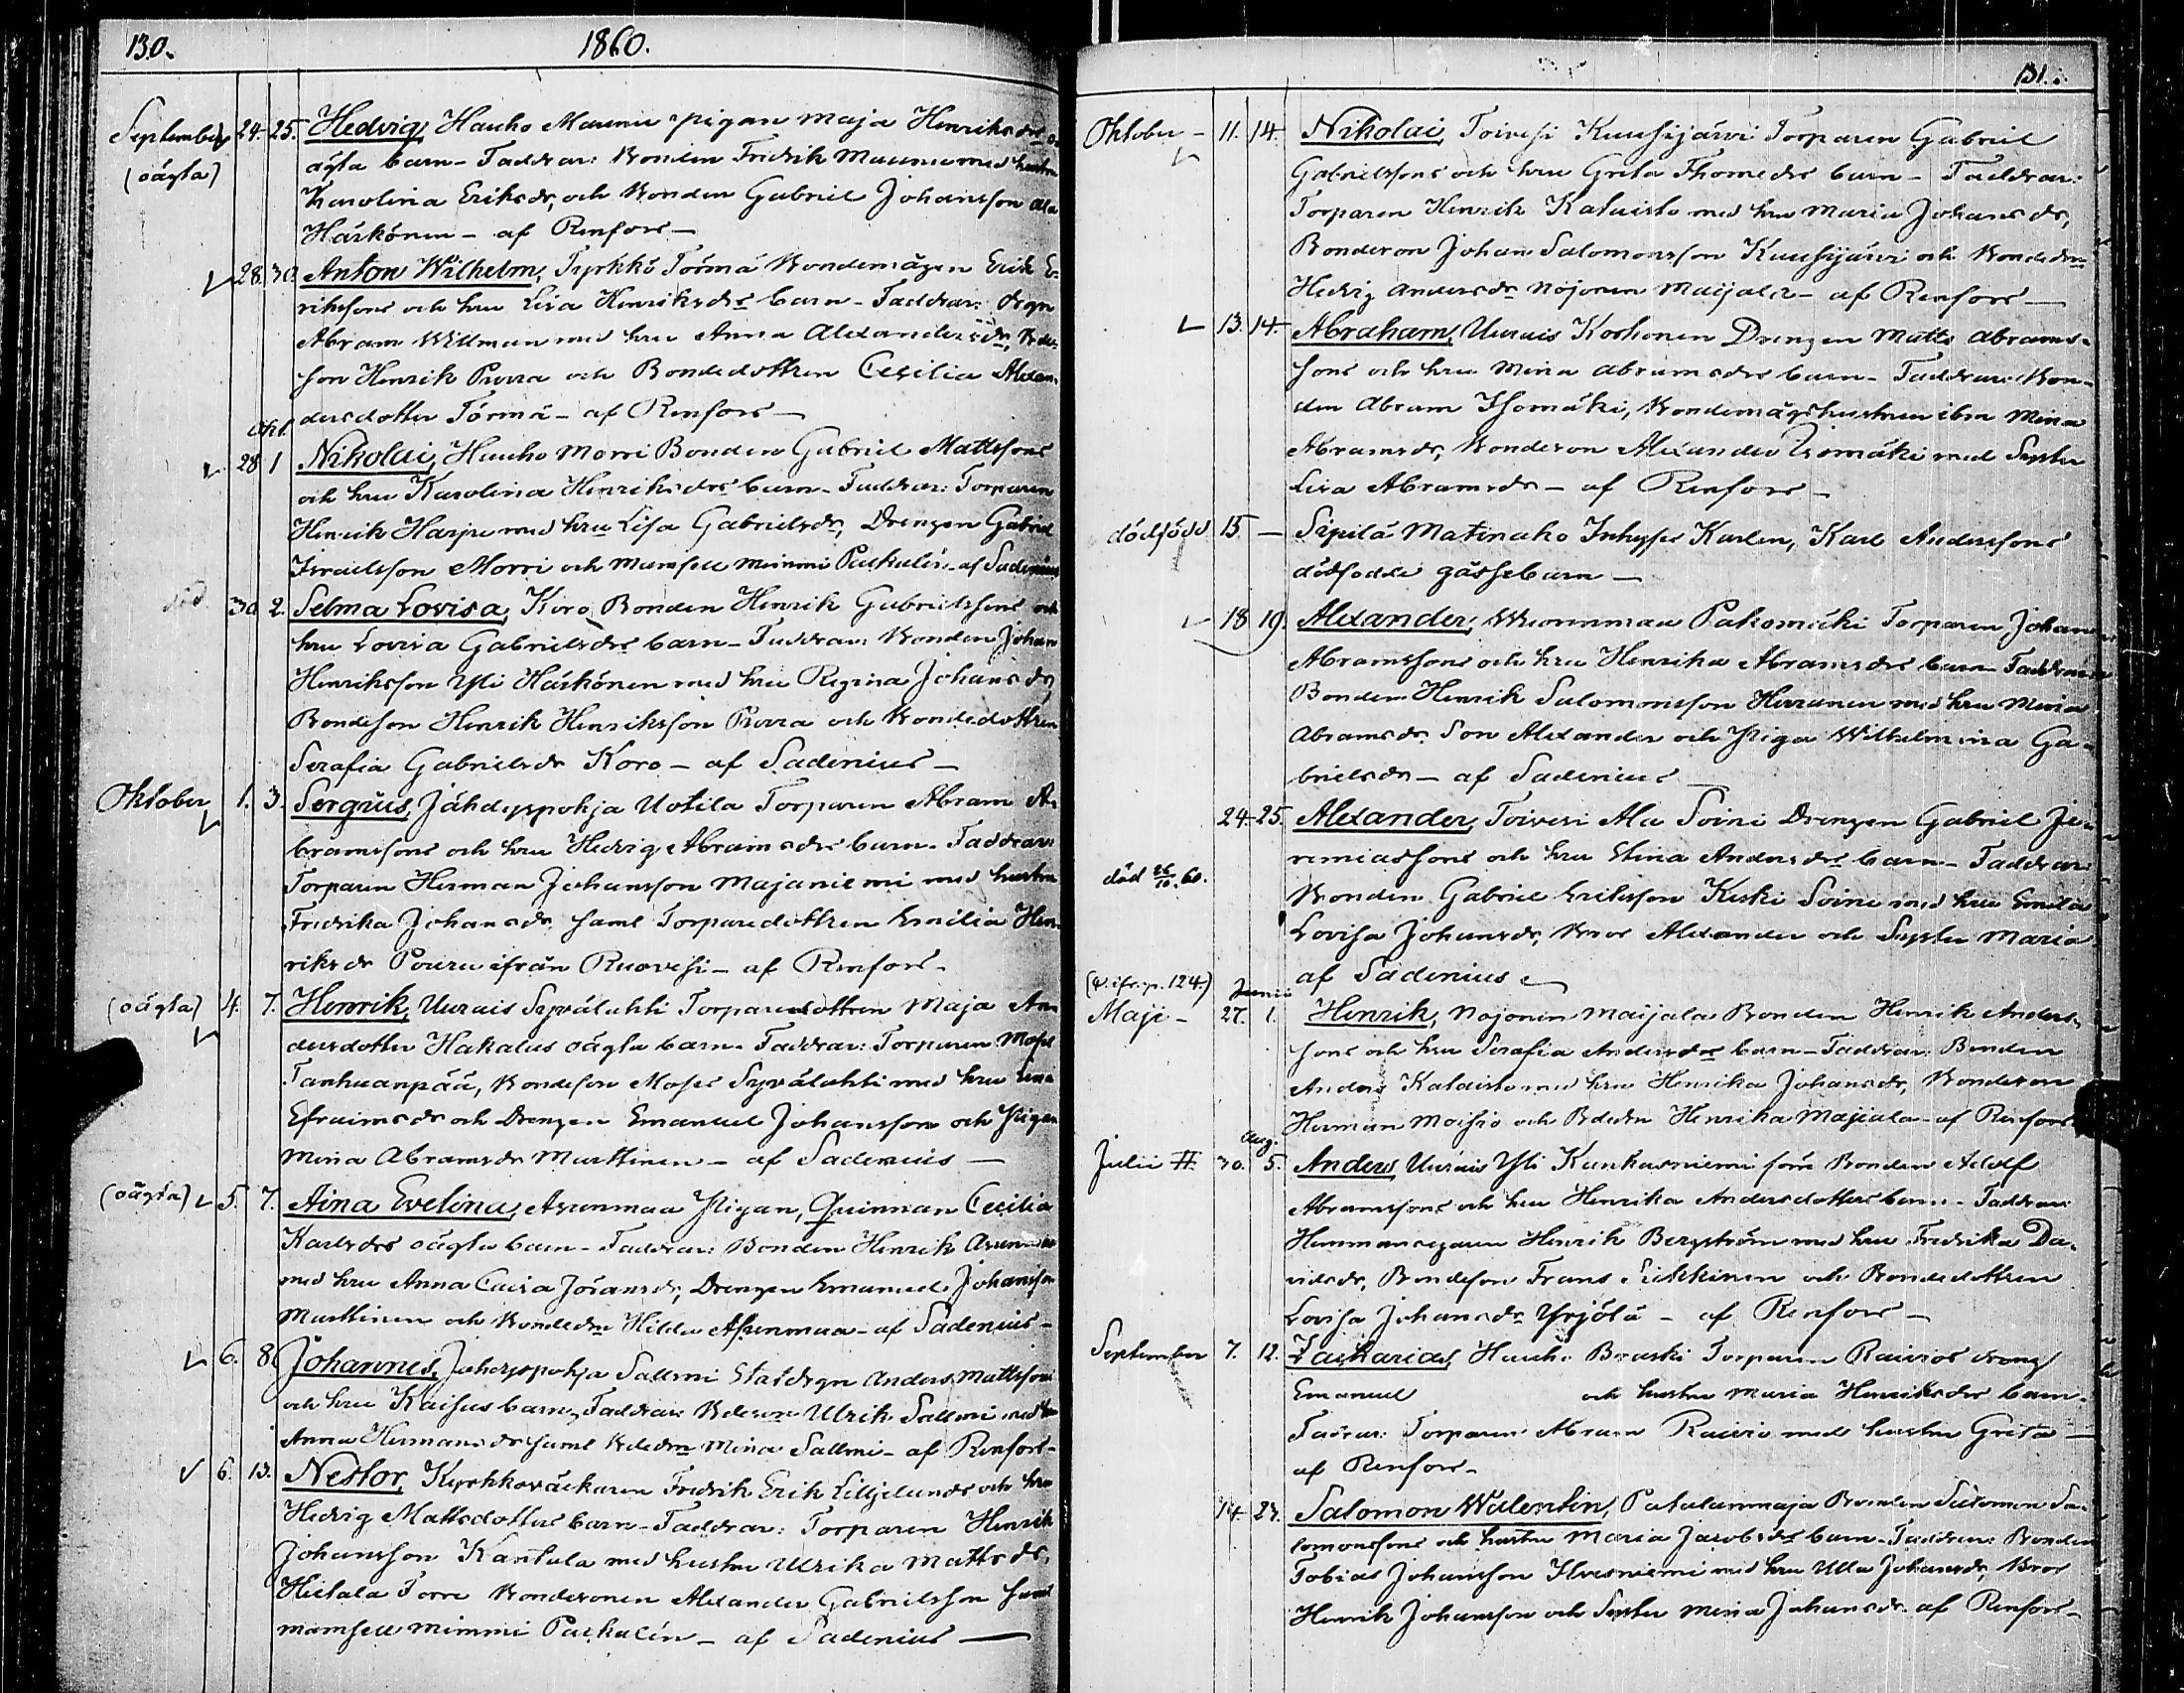 130.
1860.
September 24. 25. Hedvig, Hauho Maunu pigan Maja Henriksdrs o-
(oägta) ägta barn - Faddrar: Bonden Fredrik Maunu med hustru
Karolina Eriksdr, och Bonden Gabriel Johansson Ala
Härkönen - af Renfors -
28. 30. Anton Wilhelm, Tyrkkö Törmä Bondemågen Erik E-
rikssons och hru Lisa Henriksdrs barn - Faddrar: Drgn
Abram Willman med hru Anna Alexandersdr, Bonde-
son Henrik Purra och Bondedottren Cecilia Alexan-
dersdotter Törmä - af Renfors -
Okt.
28 1 Nikolai, Hauho Morri Bonden Gabriel Mattssons
och hru Karolina Henriksdrs barn - Faddrar: Torparen
Henrik Harju med hru Lisa Gabrielsdr, Drengen Gabriel
Israelsson Morri och Mamsell Mimmi Paskalin - af Sadenius
död 30 2. Selma Lovisa, Koro Bonden Henrik Gabrielssons och
hru Lovisa Gabrielsdrs barn - Faddrar: Bonden Johan
Henriksson Yli Härkönen med hru Regina Johansdr,
Bondeson Henrik Henriksson Purra och Bondedottren
Serafia Gabrielsdr Koro - af Sadenius -
Oktober 1. 3. Sergius, Jähdyspohja Uotila Torparen Abram A-
bramssons och hru Hedvig Abramsdrs barn - Faddrar:
Torparen Herman Johansson Majaniemi med hustru
Fredrika Johansdr, samt Torparedottren Emilia Hen-
riksdr Pouru ifrån Ruovesi - af Renfors -
(oägta) 4. 7. Henrik, Uurais Syvälahti Torparedottren Maja An-
dersdotter Hakalas oägta barn - Faddrar: Torparen Moses
Tanhuanpää, Bondeson Moses Syvälahti med hru
Efraimsdr och Drengen Emanuel Johansson och Pigan
Mina Abramsdr Marttinen - af Sadenius -
(oägta) 5. 7. Aina Evelina, Asunmaa Pigan, Qvinnan Cecilia
Karlsdrs oägta barn - Faddrar: Bonden Henrik Asunmaa
med hru Anna Caisa Göransdr, Drengen Emanuel Johansson
Marttinen och Bondedrn Hilda Asunmaa - af Sadenius -
6. 8. Johannes, Jähdyspohja Sallmi Statdrgn Anders Mattssons
och hru Kaisas barn, Faddrar: Bdeson Ulrik Sallmi med hru
Anna Hermansdr samt Bdedrn Mina Sallmi - af Renfors -
6. 13. Nestor, Kyrkkoväckaren Fredrik Erik Liljelunds och hru
Hedvig Mattsdotters barn - Faddrar: Torparen Henrik
Johansson Kantala med hustru Ulrika Mattsdr,
Hietala Torre Bondesonen Alexander Gabrielsson samt
mamsell Mimmi Paskalin - af Sadenius -
131.
Oktober - 11. 14. Nikolai, Toivesi Kuusijärvi Torparen Gabriel
Gabrielssons och hru Greta Thomedrs barn - Faddrar:
Torparen Henrik Kataisto med hru Maria Johansdr,
Bondeson Johan Salomonsson Kuusijärvi och Bondedrn
Hedvig Andersdr Nojonen Maijala - af Renfors -
13. 14. Abraham, Uurais Korhonen Drengen Matts Abrams-
sons och hru Mina Abramsdrs barn - Faddrar: Bon-
den Abram Isomäki, Bondemågshustrun ibm Mina
Abramsdr, Bondeson Alexander Isomäki med Syster
Lisa Abramsdr - af Renfors -
dödfödd 15 - Sipilä Matinaho Inhyses Karlen, Karl Anderssons
dödfödda gåssebarn -
18 19. Alexander, Wuorenmaa Pakomäki Torparen Johan
Abramssons och hru Henrika Abramsdrs barn - Faddrar:
Bonden Henrik Salomonsson Herranen med hru Maria
Abramsdr, Son Alexander och Piga Wilhelmina Ga-
brielsdr - af Sadenius -
24. 25. Alexander, Toivesi Ala Soini Drengen Gabriel Je-
remiassons och hru Stina Andersdrs barn - Faddrar:
död 26/10. 60. Bonden Gabriel Eriksson Keski Soini med hru Emilia
Lovisa Johansdr, Bror Alexander och Syster Maria
af Sadenius -
(v. ifr. p. 124.)
Junii
Maji - 27. 1. Henrik, Nojonen Maijala Bonden Henrik Anders-
sons och hru Serafia Andersdrs barn - Faddrar: Bonden
Anders Kataisto med hru Henrika Johansdr, Bondeson
Herman Moisio och Bdedrn Henrika Majiala - af Renfors
Aug.
Julii # 30. 5. Anders, Uurais Yli Kankasniemi förre Bonden Adolf
Abramssons och hru Henrika Andersdotters barn - Faddrar:
Hemmansegaren Henrik Bergström med hru Fredrika Da-
vidsdr, Bondeson Frans Sikkinen och Bondedottren
Lovisa Johansdr Yrjölä - af Renfors -
September 7. 12. Zacharias, Hauho Braski Torparen Raivios dreng
Emanuel och hustru Maria Henriksdrs barn -
Faddrar: Torparen Abram Raivio med hustru Greta -
af Renfors -
14. 23. Salomon Walentin, Patalanmaja Bonden Salomon Sa-
lomonssons och hustru Maria Jacobsdrs barn - Faddrar: Bonden
Tobias Johansson Ilvesniemi med hru Ulla Johansdr, Bror
Henrik Johansson och Syster Mina Johansdr - af Renfors -